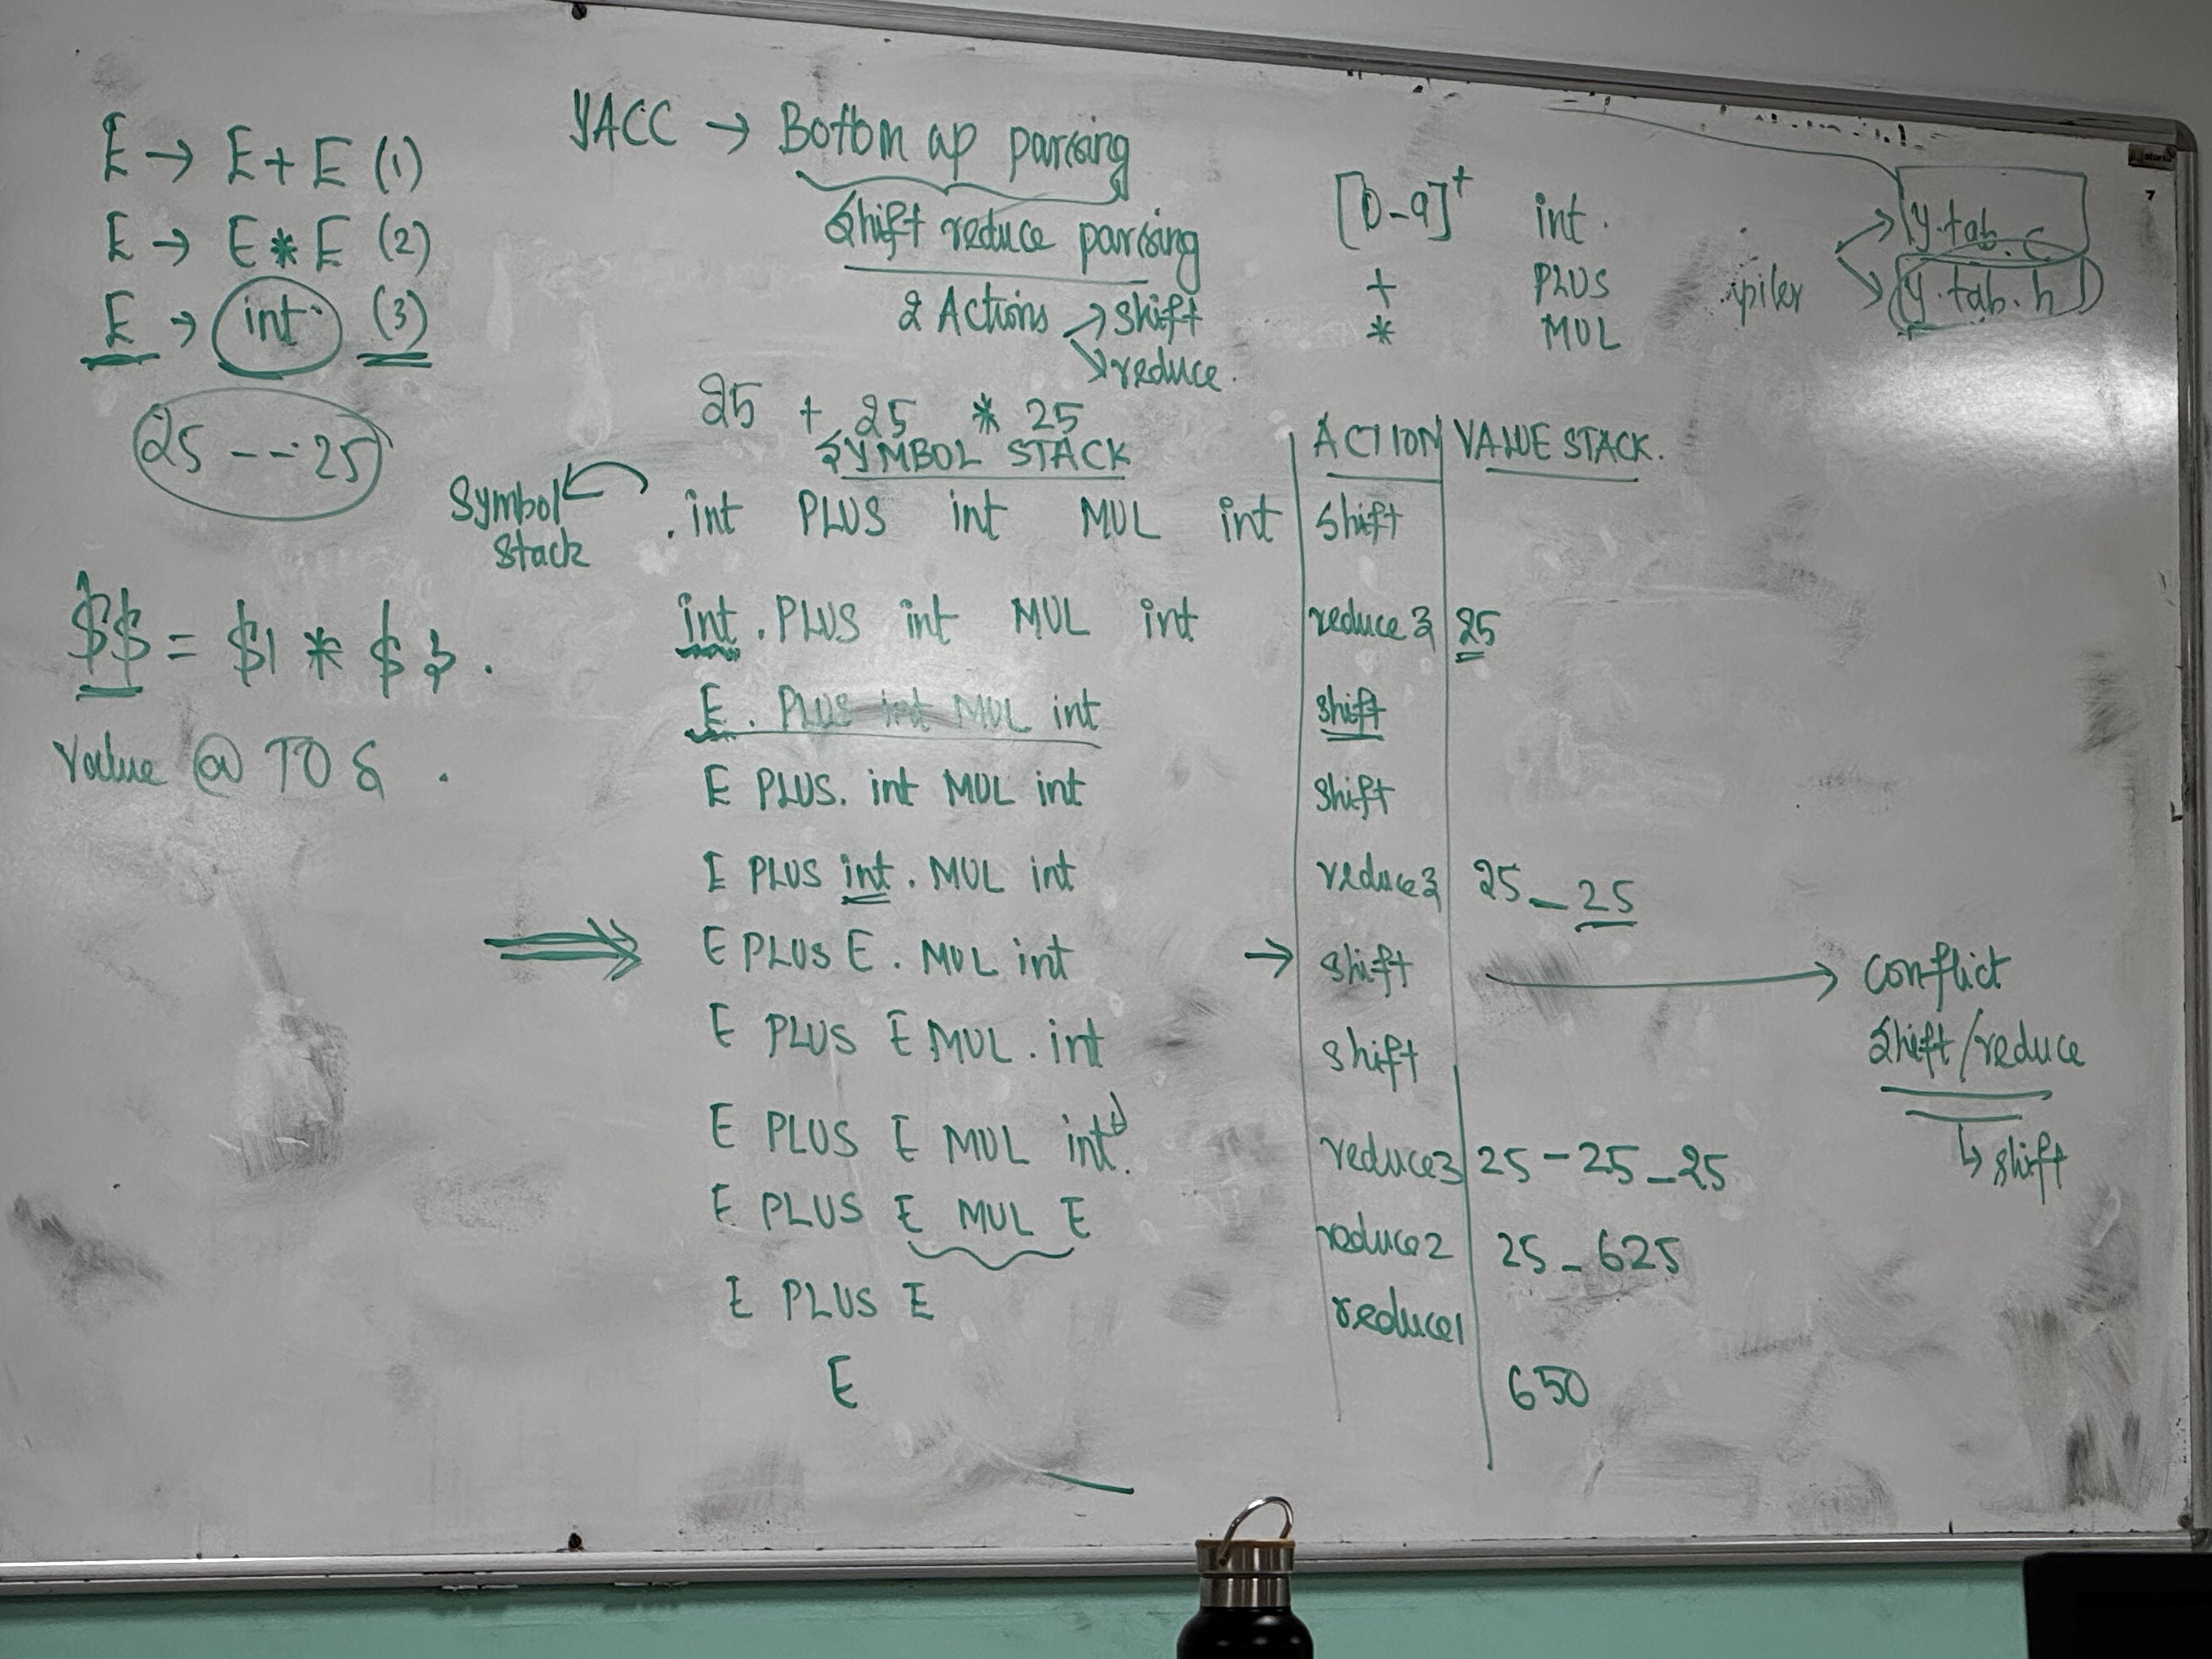 E → E + E (1)
E → E * E (2)
E → int (3)
25 -- - 25
$$ = $1 * $3.
Value @ TOS.
YACC → Bottom up parsing
Shift reduce parsing
2 Actions → shift
↘ reduce.
[0-9]+ int.
+ PLUS
* MUL
piler
y.tab.c
y.tab.h
25 + 25 * 25
SYMBOL STACK ACTION VALUE STACK.
Symbol Stack
. int PLUS int MUL int shift
int . PLUS int MUL int reduce 3 25
E . PLUS int MUL int shift
E PLUS . int MUL int shift
E PLUS int . MUL int reduce 3 25 _ 25
⇒ E PLUS E . MUL int → shift → conflict
Shift/reduce
↳ shift
E PLUS E MUL . int shift
E PLUS E MUL int. reduce3 25 - 25 _ 25
E PLUS E MUL E reduce2 25 - 625
E PLUS E reduce1
E 650
7